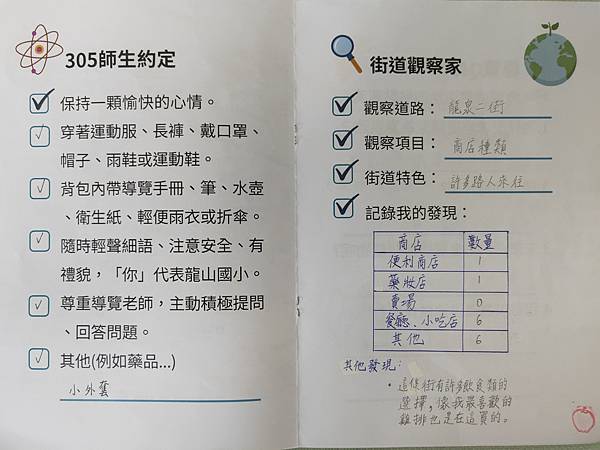 305師生約定
保持一顆愉快的心情。
穿著運動服、長褲、戴口罩、
帽子、雨鞋或運動鞋。
背包內帶導覽手冊、筆、水壺
、衛生紙、輕便雨衣或折傘。
隨時輕聲細語、注意安全、有
禮貌，「你」代表龍山國小。
尊重導覽老師，主動積極提問
、回答問題。
其他(例如藥品...)
小外套
街道觀察家
觀察道路：龍泉二街
觀察項目：商店種類
街道特色：許多路人來往
記錄我的發現：
商店 數量
便利商店 1
藥妝店 1
賣場 0
餐廳、小吃店 6
其他 6
其他發現：
・這條街有許多飲食類的
選擇，像我最喜歡的
雞排也是在這買的。